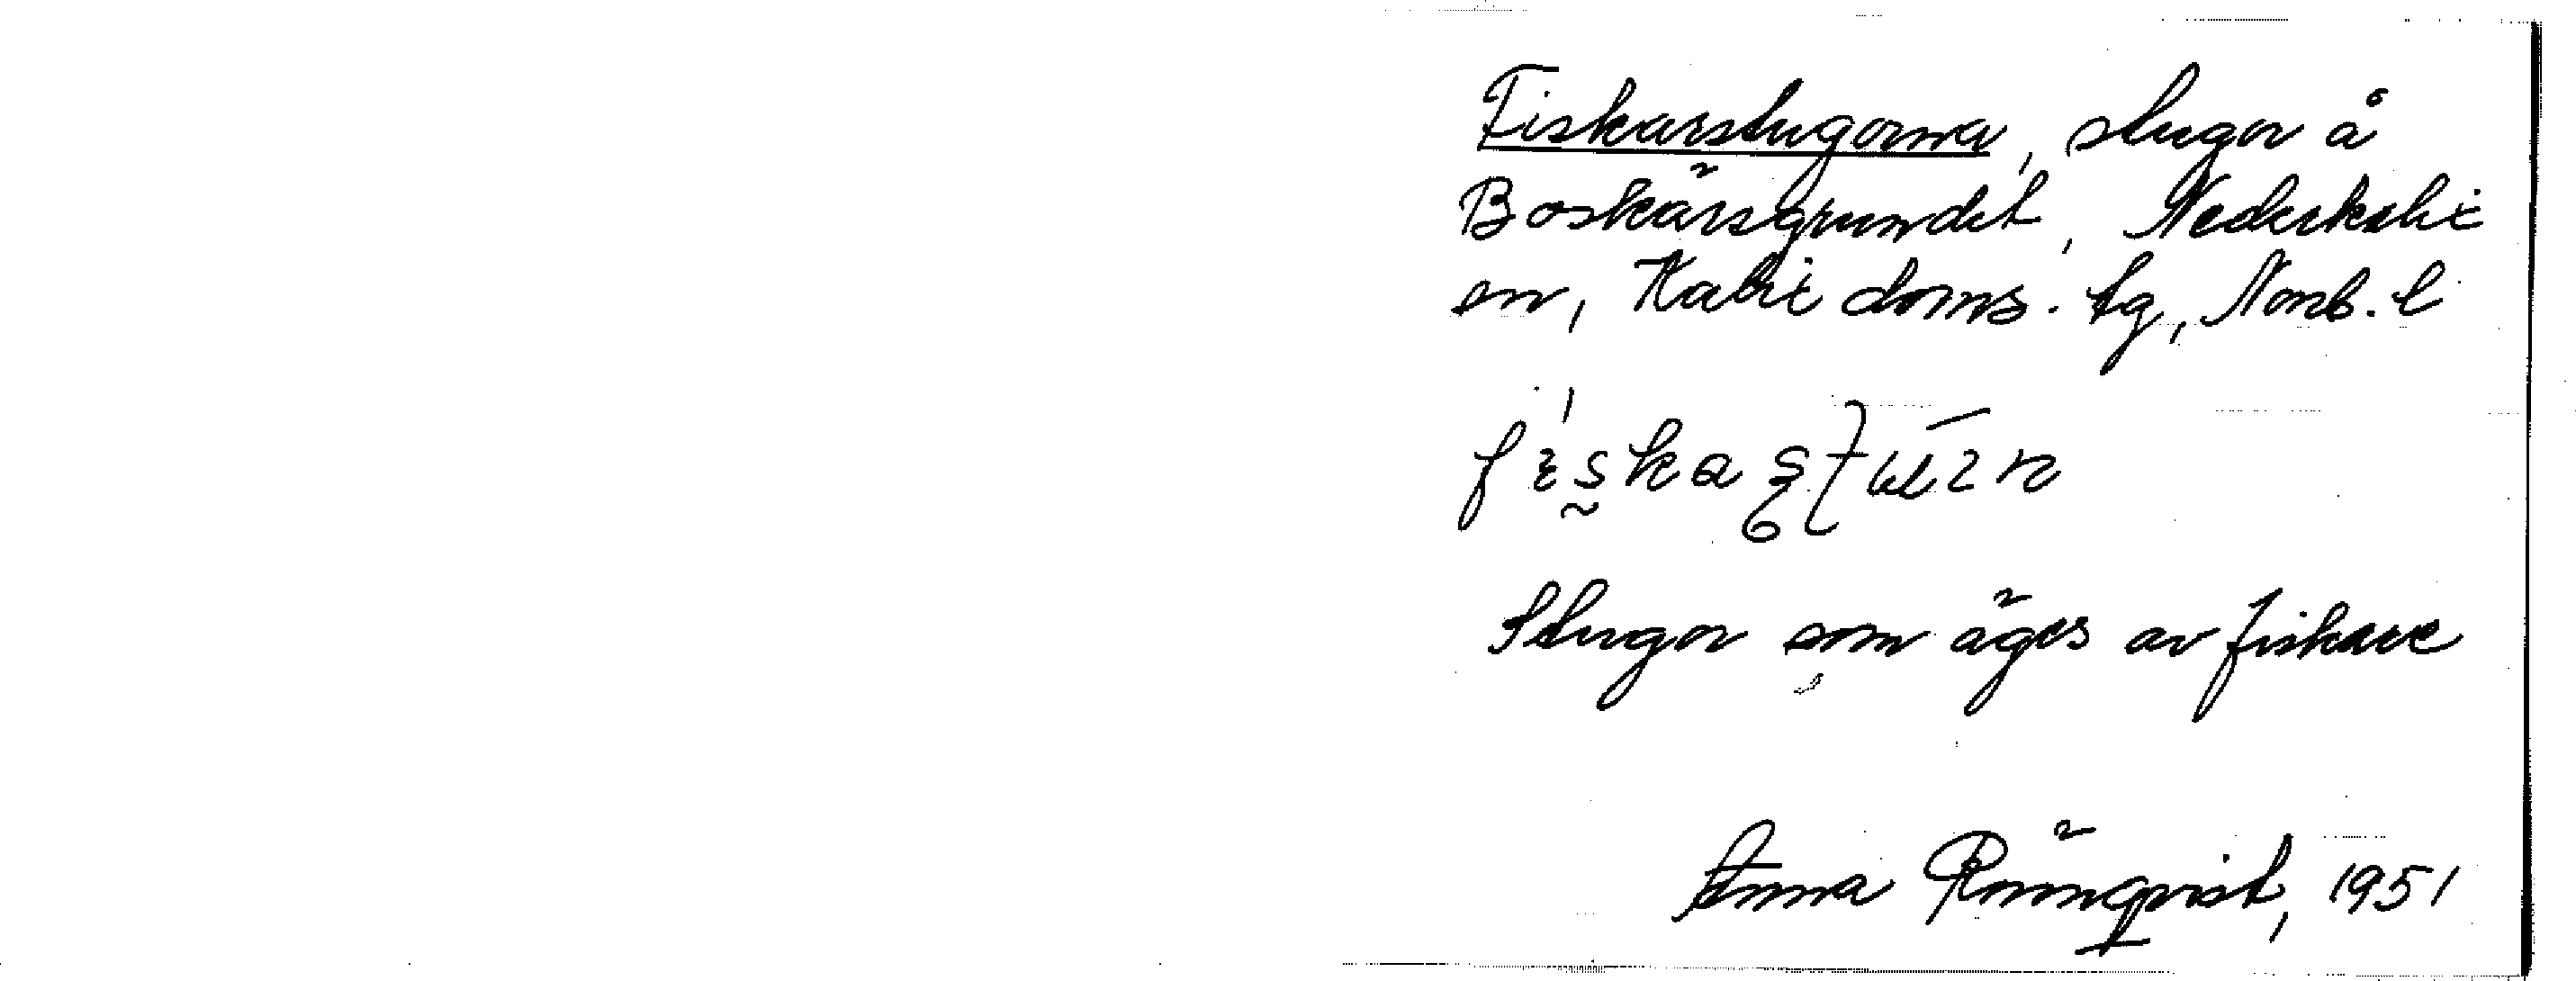 Fiskarstugorna, stugor å
Boskärsgrundet, Nederkalix
sn, Kalix doms. tg, Norrb. l
Stugor som äges av fiskare
Anna Rönnqvist, 1951